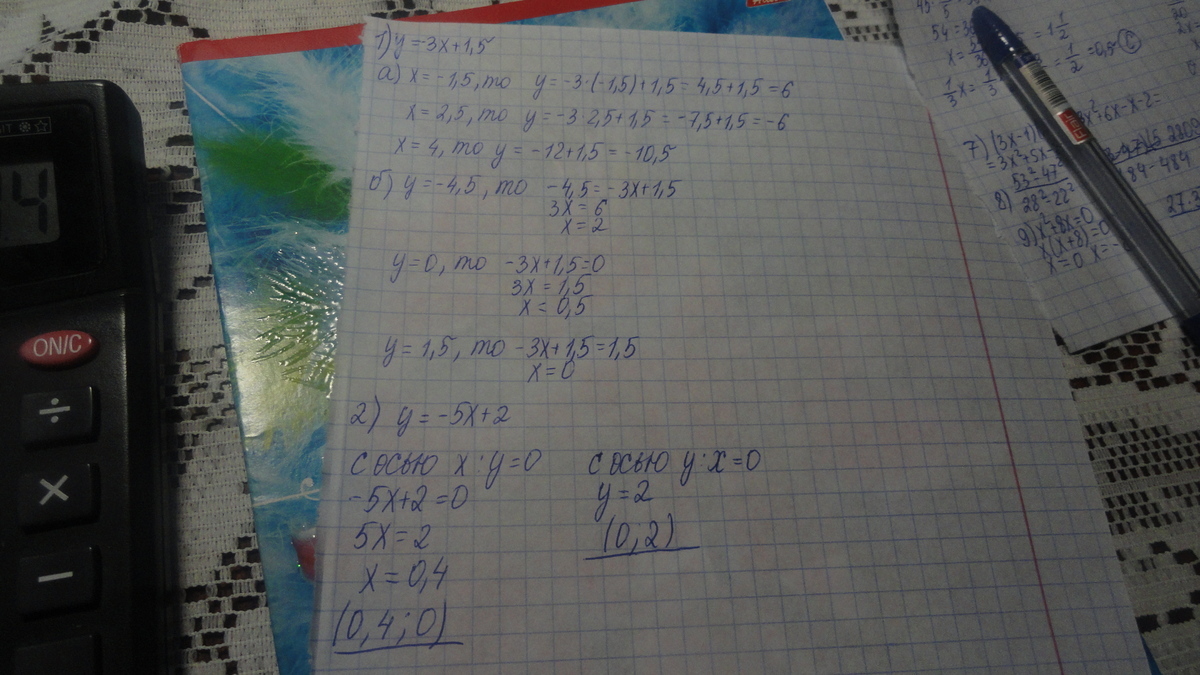 1) y = 3x+1,5
а) x = -1,5, то y = -3·(-1,5)+1,5 = 4,5+1,5 = 6
x = 2,5, то y = -3·2,5+1,5 = -7,5+1,5 = -6
x = 4, то y = -12+1,5 = -10,5
б) y = -4,5, то -4,5 = -3x+1,5
3x = 6
x = 2
y = 0, то -3x+1,5=0
3x = 1,5
x = 0,5
y = 1,5, то -3x+1,5 = 1,5
x = 0
2) y = -5x+2
с осью x: y=0
-5x+2 = 0
5x = 2
x = 0,4
(0,4; 0)
с осью y: x=0
y = 2
(0; 2)
= 1 1/2
1/3 x =
1/2 = 0,5 С
7) (3x-1)
3x²+6x-x-2=
= 3x²+5x
8) 53²-47²
28²-22²
9) x²+8x=0
x(x+8)=0
x=0
ON/C
÷
×
−